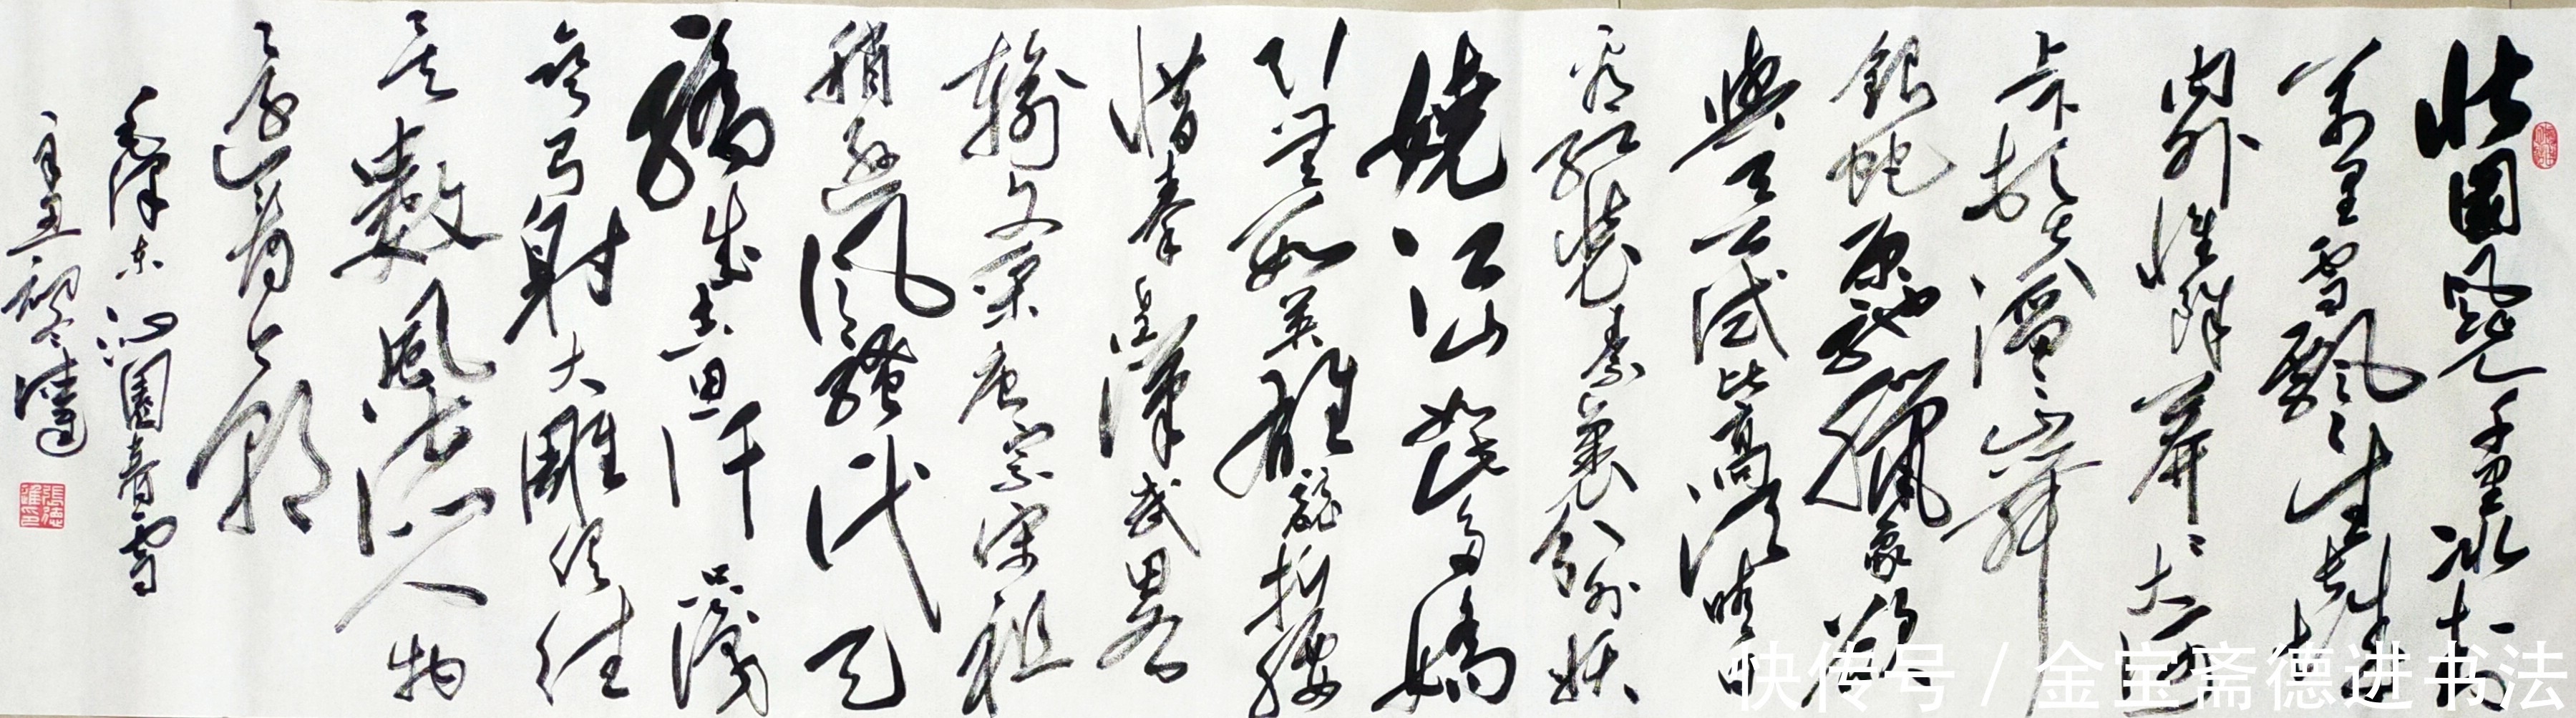 北國風光千里冰封
萬里雪飄望長城
内外惟餘莽〻大河
上下頓失滔〻山舞
銀蛇原馳臘象欲
與天公試比高須晴日
看紅裝素裹分外妖
嬈江山如此多嬌
引無數英雄競折腰
惜秦皇漢武略
輸文采唐宗宋祖
稍遜風騷一代天
驕成吉思汗只識
彎弓射大雕俱往
矣數風流人物
還看今朝
毛澤东沁園春雪
德進
快传号 / 金宝斋德进书法